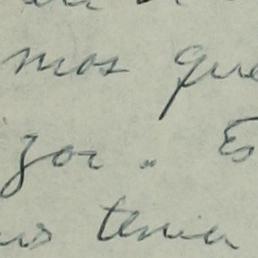 mos que
zor.. Es
us tenia